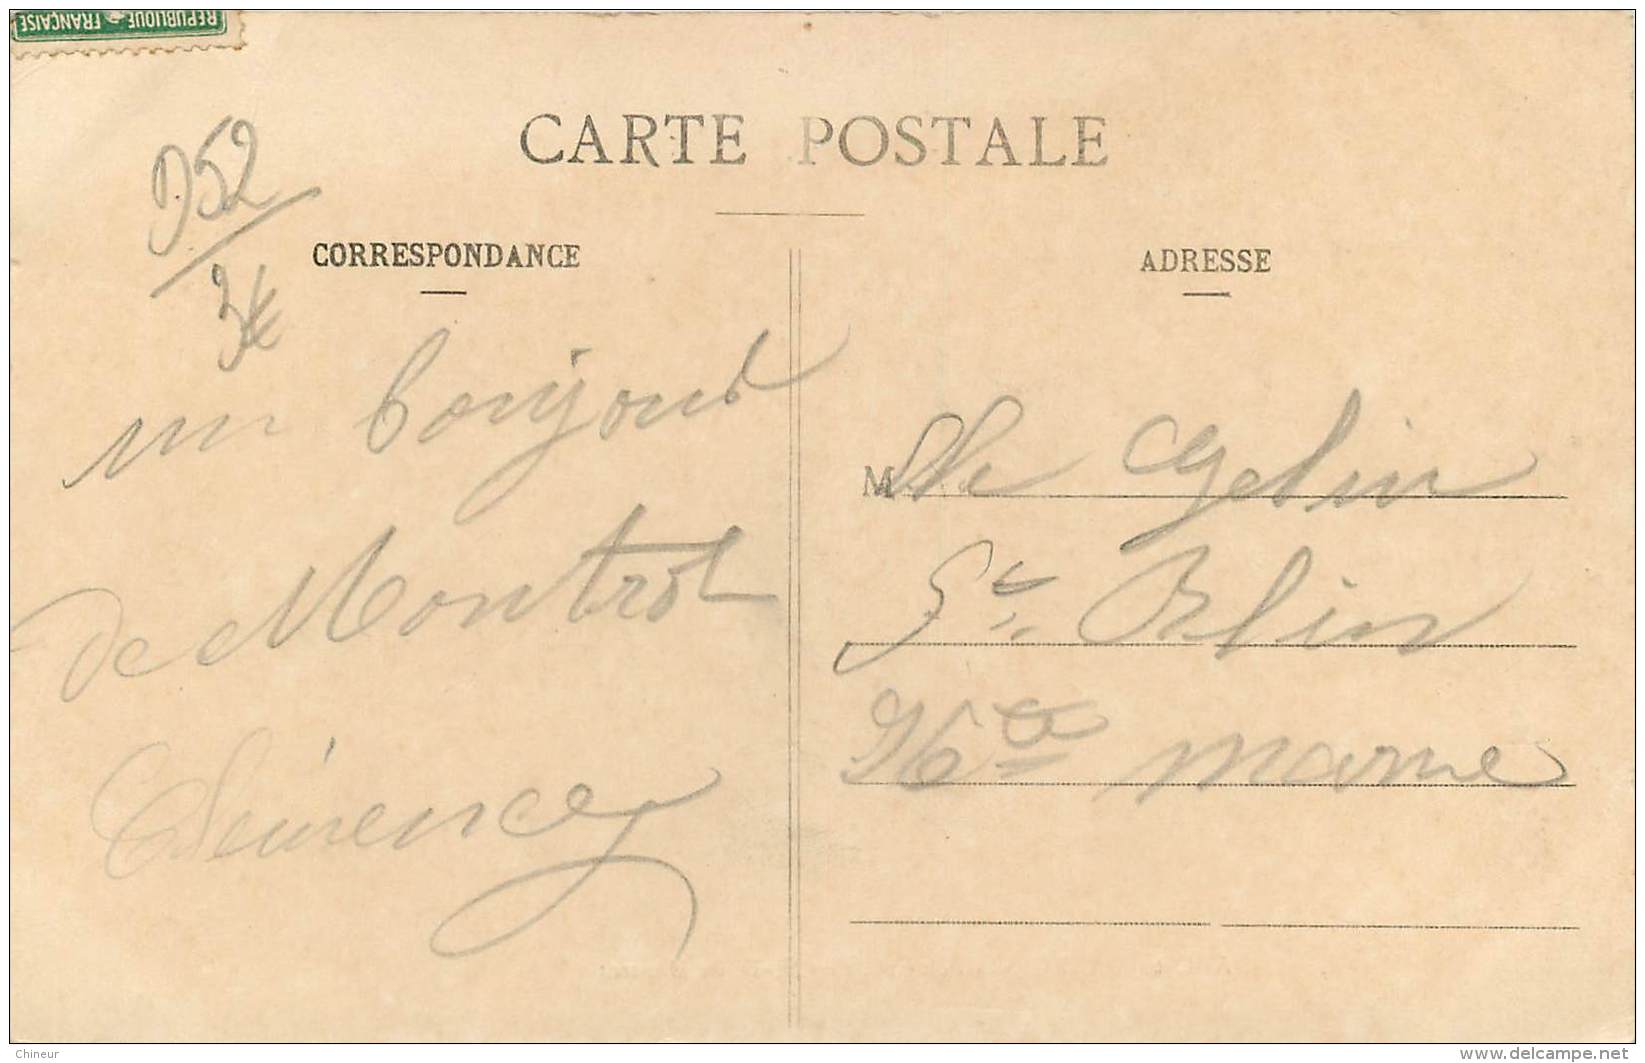 REPUBLIQUE FRANÇAISE
CARTE POSTALE
D52
3€
CORRESPONDANCE
un bonjour
de Montrol
Clémence
ADRESSE
M
Gelin
St. Blin
Hte marne
Chineur
www.delcampe.net